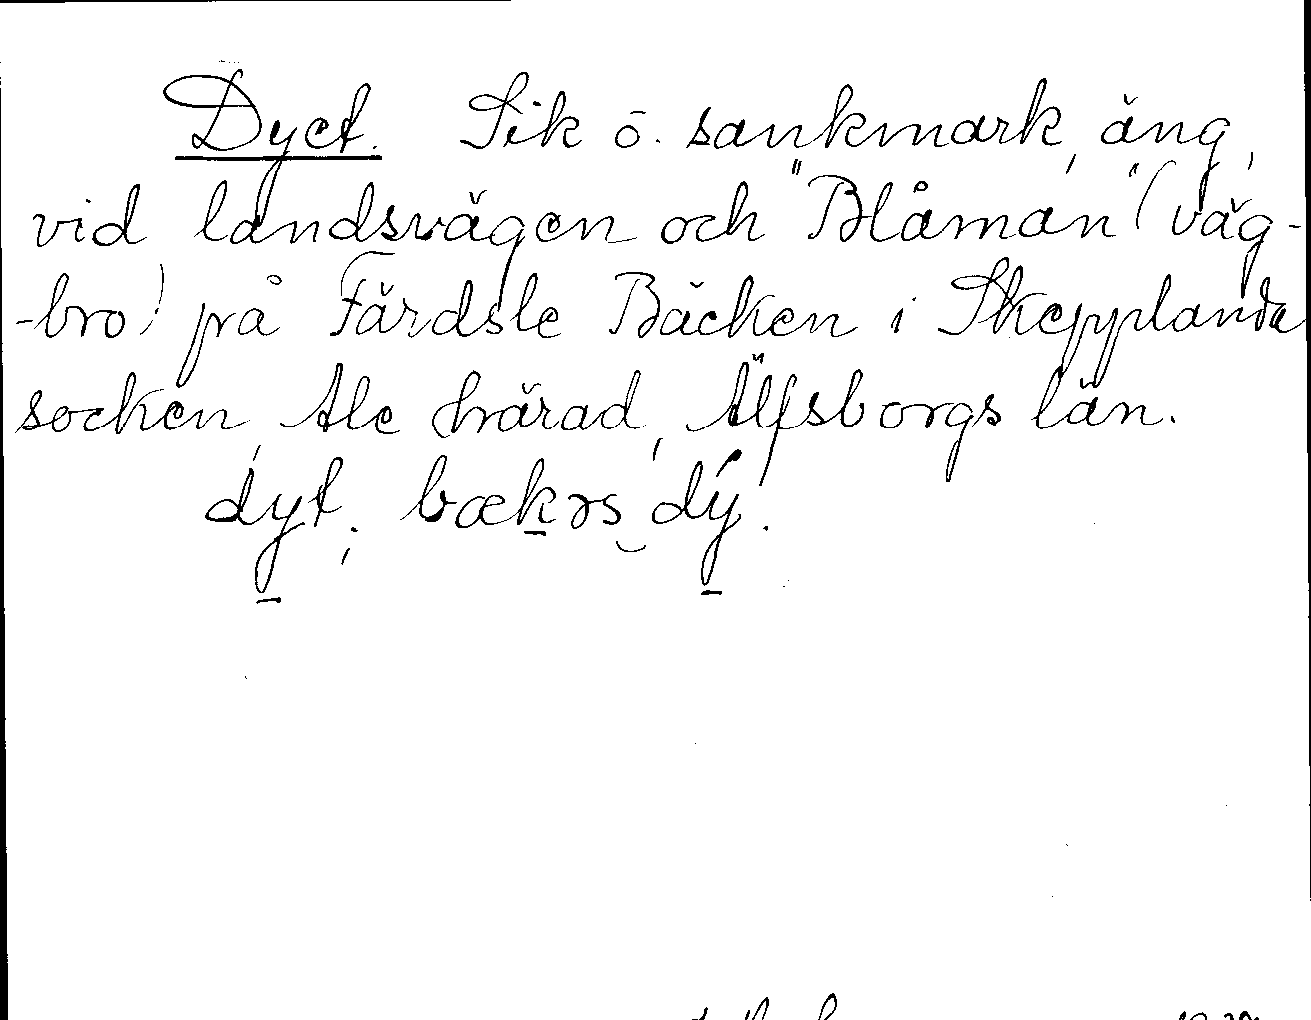 Dyet. Sik o. sankmark, äng,
vid landsvägen och "Blåman" (väg-
-bro) på Färdsle Bäcken i Skepplanda
socken, Ale härad, Älfsborgs län.
dyt; bækrs dý.